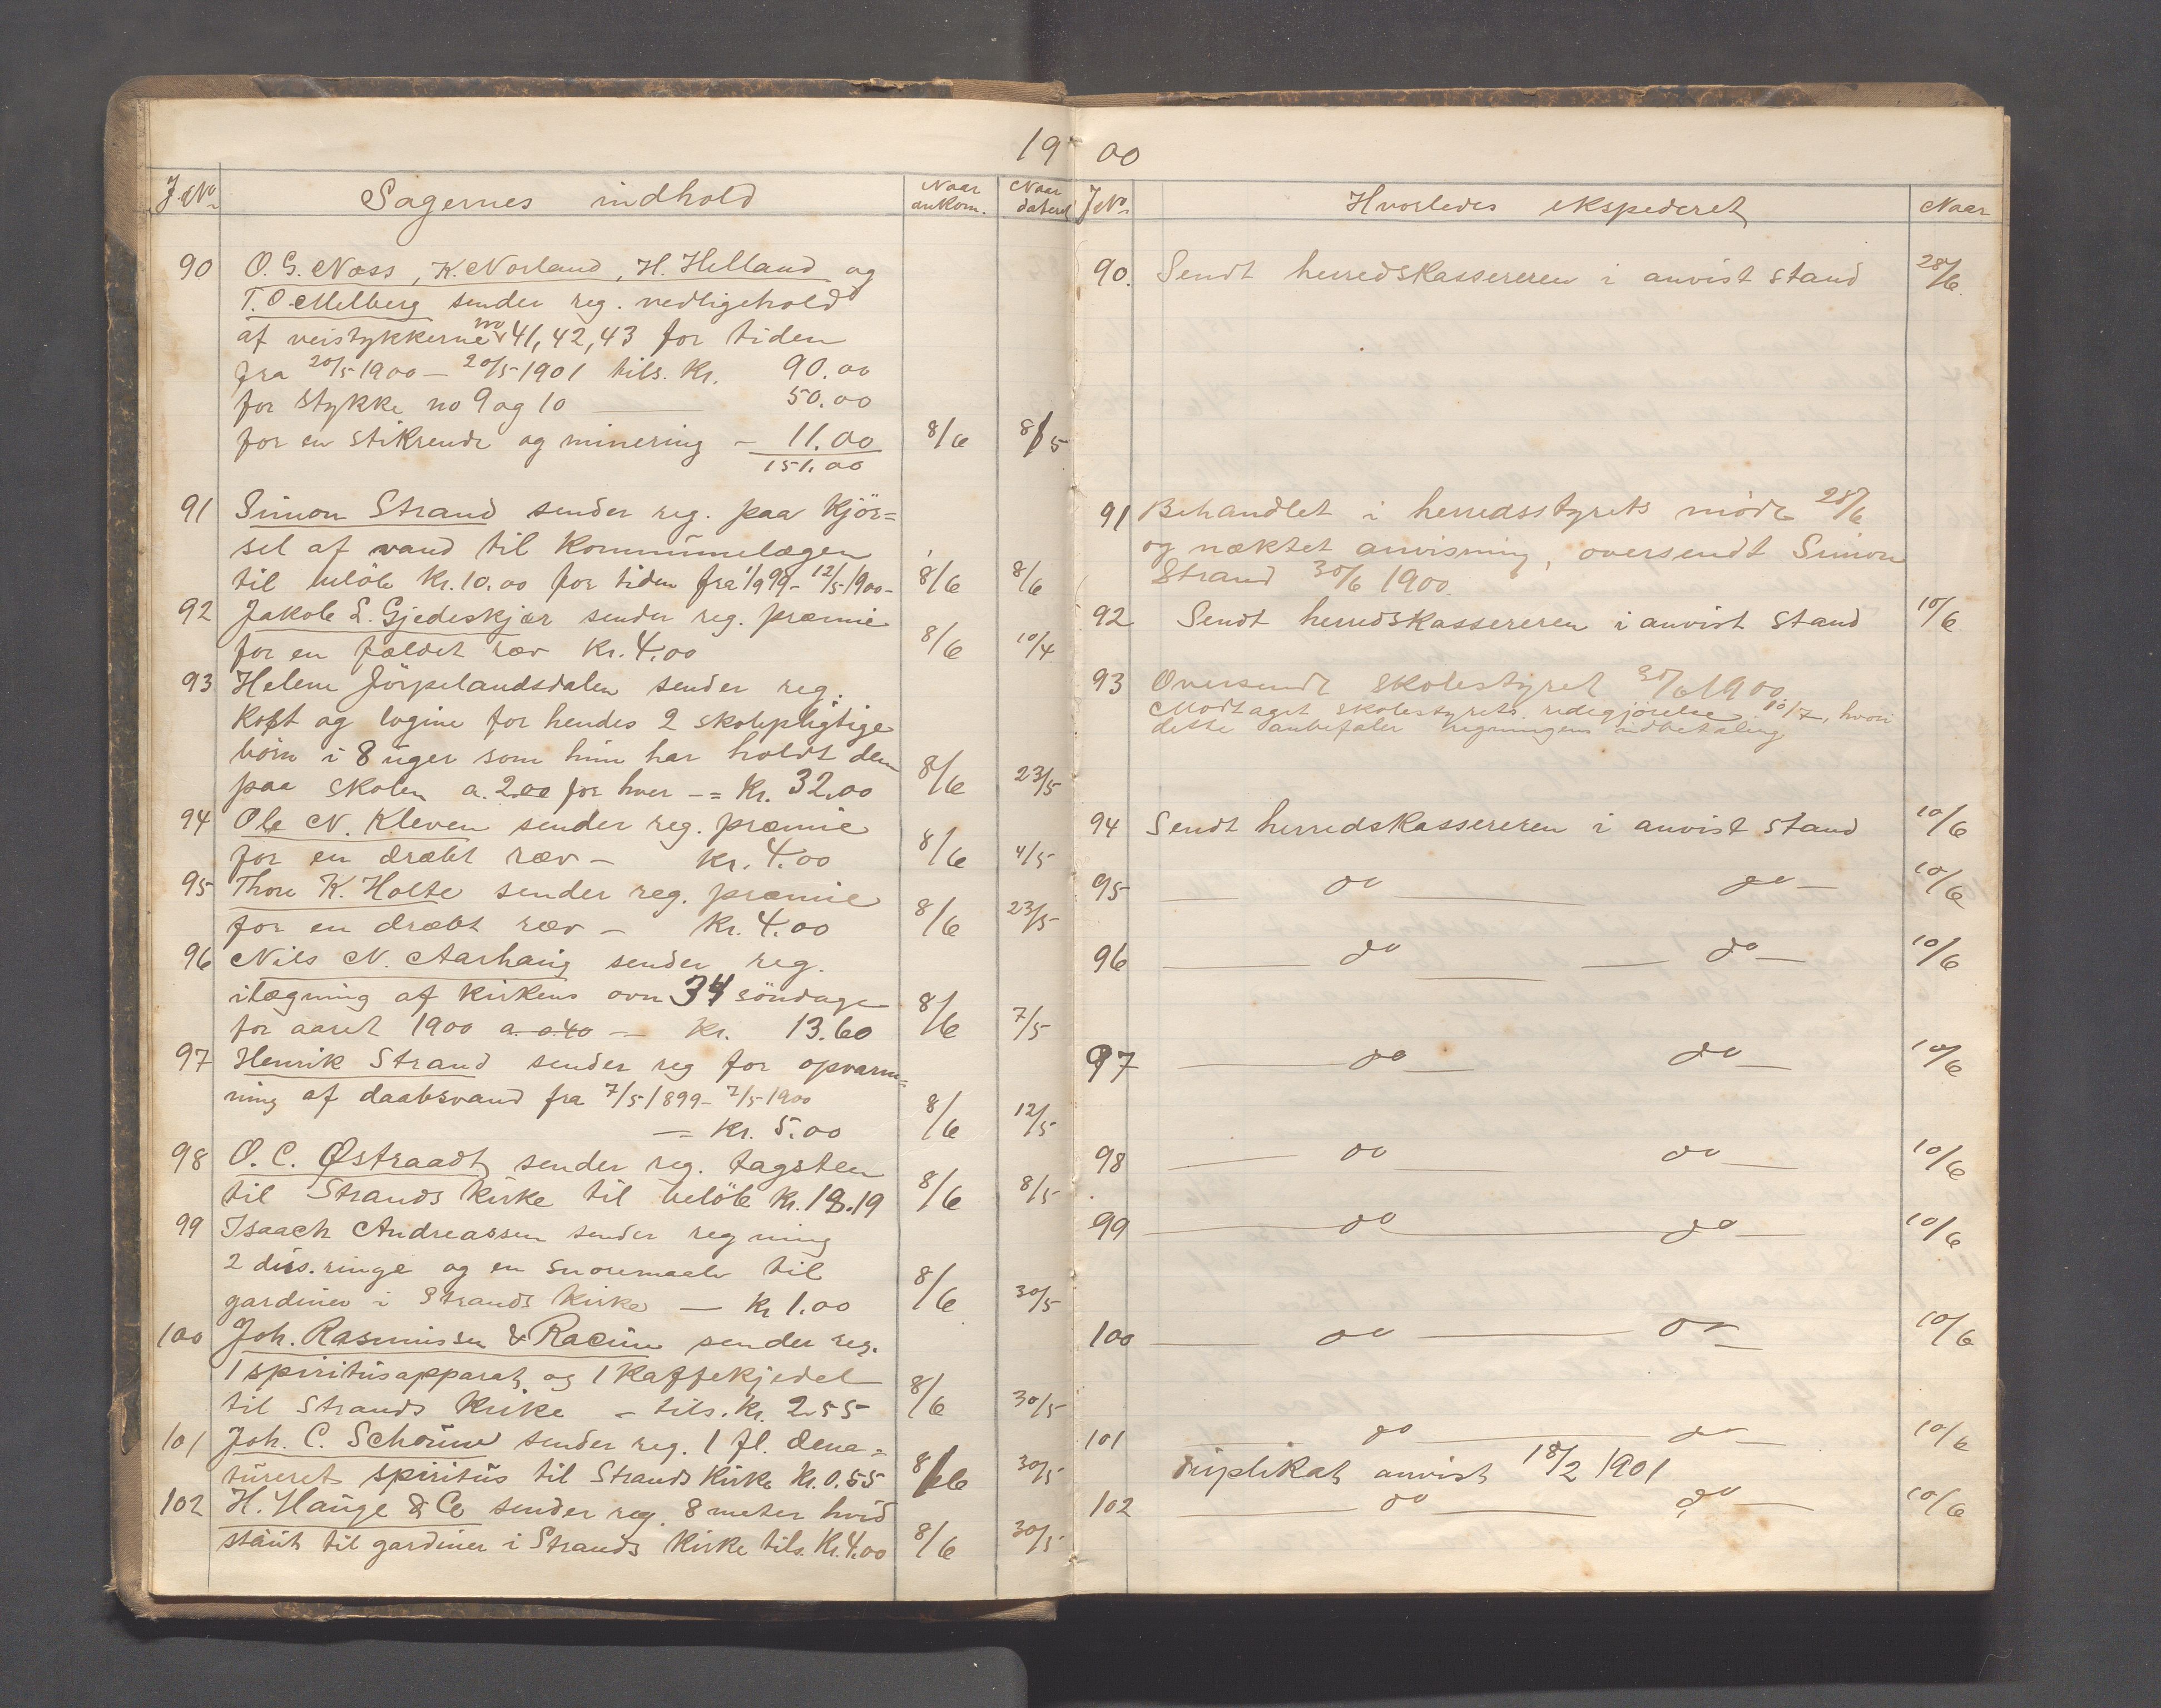 1900
J. No
Sagernes indhold
Naar ankom.
Naar dateret
90 O. G. Næss, K. Norland, H. Helland og
T. O. Melberg sender reg. vedligehold
af veistykkerne no 41, 42, 43 for tiden
fra 20/5 1900 – 20/5 1901 tils. Kr. 90.00
for stykke no 9 og 10 — 50.00
for en stikrende og minering – 11.00 8/6 8/5
151.00
91 Simon Strand sender reg. paa kjör=
sel af vand til Kommunelægen
til belöb Kr. 10.00 for tiden fra 1/9 99 – 12/5 1900 – 8/6 8/6
92 Jakob L. Gjedeskjær sender reg. præmie
for en fældet ræv Kr. 4.00 8/6 10/4
93 Helene Jörpelandsdalen sender reg.
Kost og logine for hendes 2 skolepligtige
börn i 8 uger som hun har holdt dem
paa skolen a. 2.00 for hver – = Kr. 32.00 8/6 23/5
94 Ole N. Kleven sender reg. præmie
for en dræbt ræv – Kr. 4.00 8/6 4/5
95 Thore K. Holte sender reg. præmie
for en dræbt ræv – Kr. 4.00 8/6 23/5
96 Nils N. Aarhaug sender reg.
ilægning af kirkens ovn 34 söndage
for aaret 1900 a 0.40 — Kr. 13.60 8/6 7/5
97 Henrik Strand sender reg for opvarm=
ning af daabsvand fra 7/5 1899 – 7/5 1900
– = Kr. 5.00 8/6 12/5
98 O. C. Østraadt sender reg. tagsten
til Strands kirke til belöb Kr. 18.19 8/6 8/5
99 Isaach Andreassen sender regning
2 dus. ringe og en til
gardiner i Strands Kirke — Kr 1.00 8/6 30/5
100 Joh. Rasmussen & Racine sender reg.
1 spiritusapparat og 1 Kaffekjedel
til Strands Kirke – tils. Kr. 2.55 8/6 30/5
101 Joh. C. Schouw sender reg. 1 fl. dena=
tureret spiritus til Strands Kirke Kr. 0.55 8/6 30/5
102 H. Hauge & Co sender reg. 8 meter hvid
til gardiner i Strands Kirke tils. Kr. 4.00 8/6 30/5
J No
Hvorledes ekspederet
Naar
90. Sendt herredskassereren i anvist stand 28/6
91 Behandlet i herredsstyrets möde 28/6
og nægtet anvisning, oversendt Simon
Strand 30/6 1900.
92 Sendt herredskassereren i anvist stand 10/6
93 Oversendt skolestyret 30/6 1900.
Modtaget skolestyrets redegjörelse 10/7, hvori
dette anbefaler regningens udbetaling
94 Sendt herredskassereren i anvist stand 10/6
95 — do — do — 10/6
96 — do — do — 10/6
97 — do — do — 10/6
98 — do — do — 10/6
99 — do — do — 10/6
100 — do — do — 10/6
101 — do — do — 10/6
duplikat anvist 18/2 1901
102 — do — do — 10/6